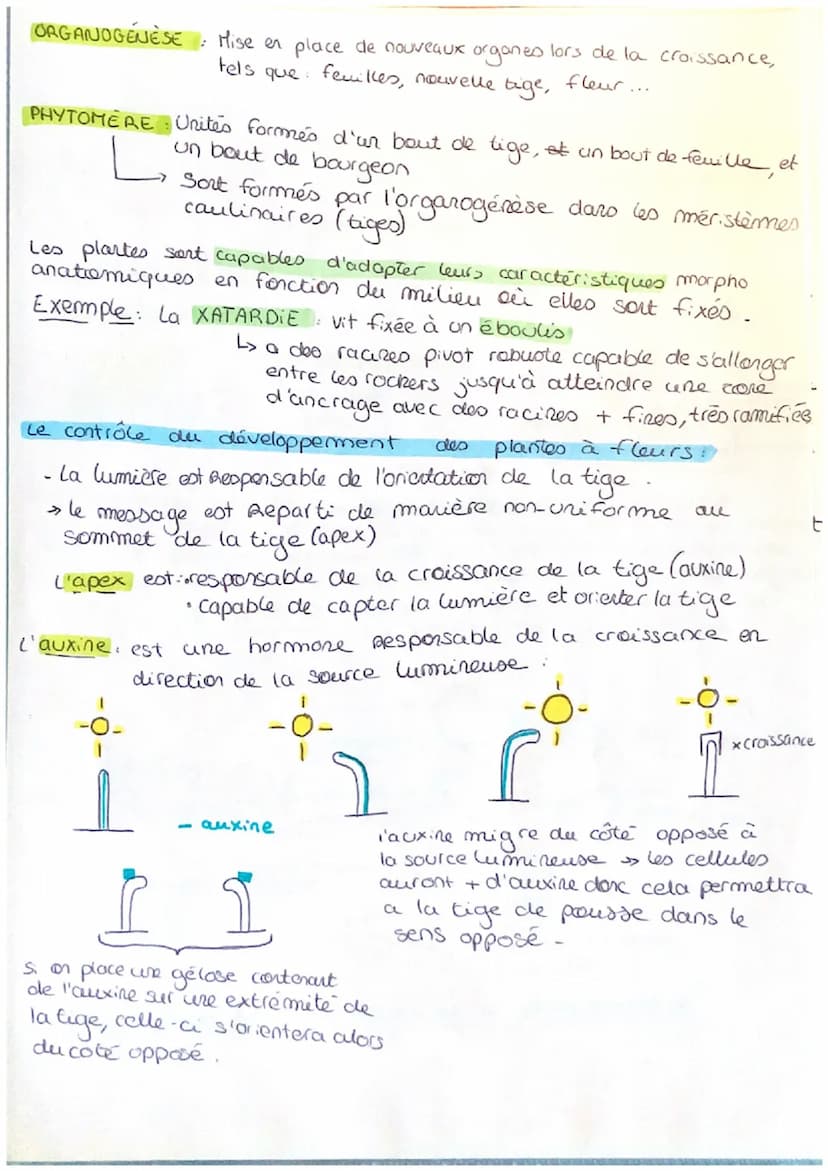 ORGANOGÉNÈSE : Mise en place de nouveaux organes lors de la croissance,
tels que : feuilles, nouvelle tige, fleur...
PHYTOMÈRE : Unités formés d'un bout de tige, et un bout de feuille, et
un bout de bourgeon
→ Sont formés par l'organogénèse dans les méristèmes
caulinaires (tiges)
Les plantes sont capables d'adapter leurs caractéristiques morpho
anatomiques en fonction du milieu où elles sont fixés.
Exemple : La XATARDIE : vit fixée à un éboulis
↳ a des racines pivot robuste capable de s'allonger
entre les rochers jusqu'à atteindre une zone
d'ancrage avec des racines + fines, très ramifiés
Le contrôle du développement des plantes à fleurs :
- La lumière est responsable de l'orientation de la tige.
→ le message est reparti de manière non-uniforme au
sommet de la tige (apex)
t
L'apex est : • responsable de la croissance de la tige (auxine)
• capable de capter la lumière et orienter la tige
L'auxine : est une hormone responsable de la croissance en
direction de la source lumineuse :
x croissance
- auxine
l'auxine migre du côté opposé à
la source lumineuse → les cellules
auront + d'auxine donc cela permettra
a la tige de pousse dans le
sens opposé -
Si on place une gélose contenant
de l'auxine sur une extrémité de
la tige, celle-ci s'orientera alors
du coté opposé.